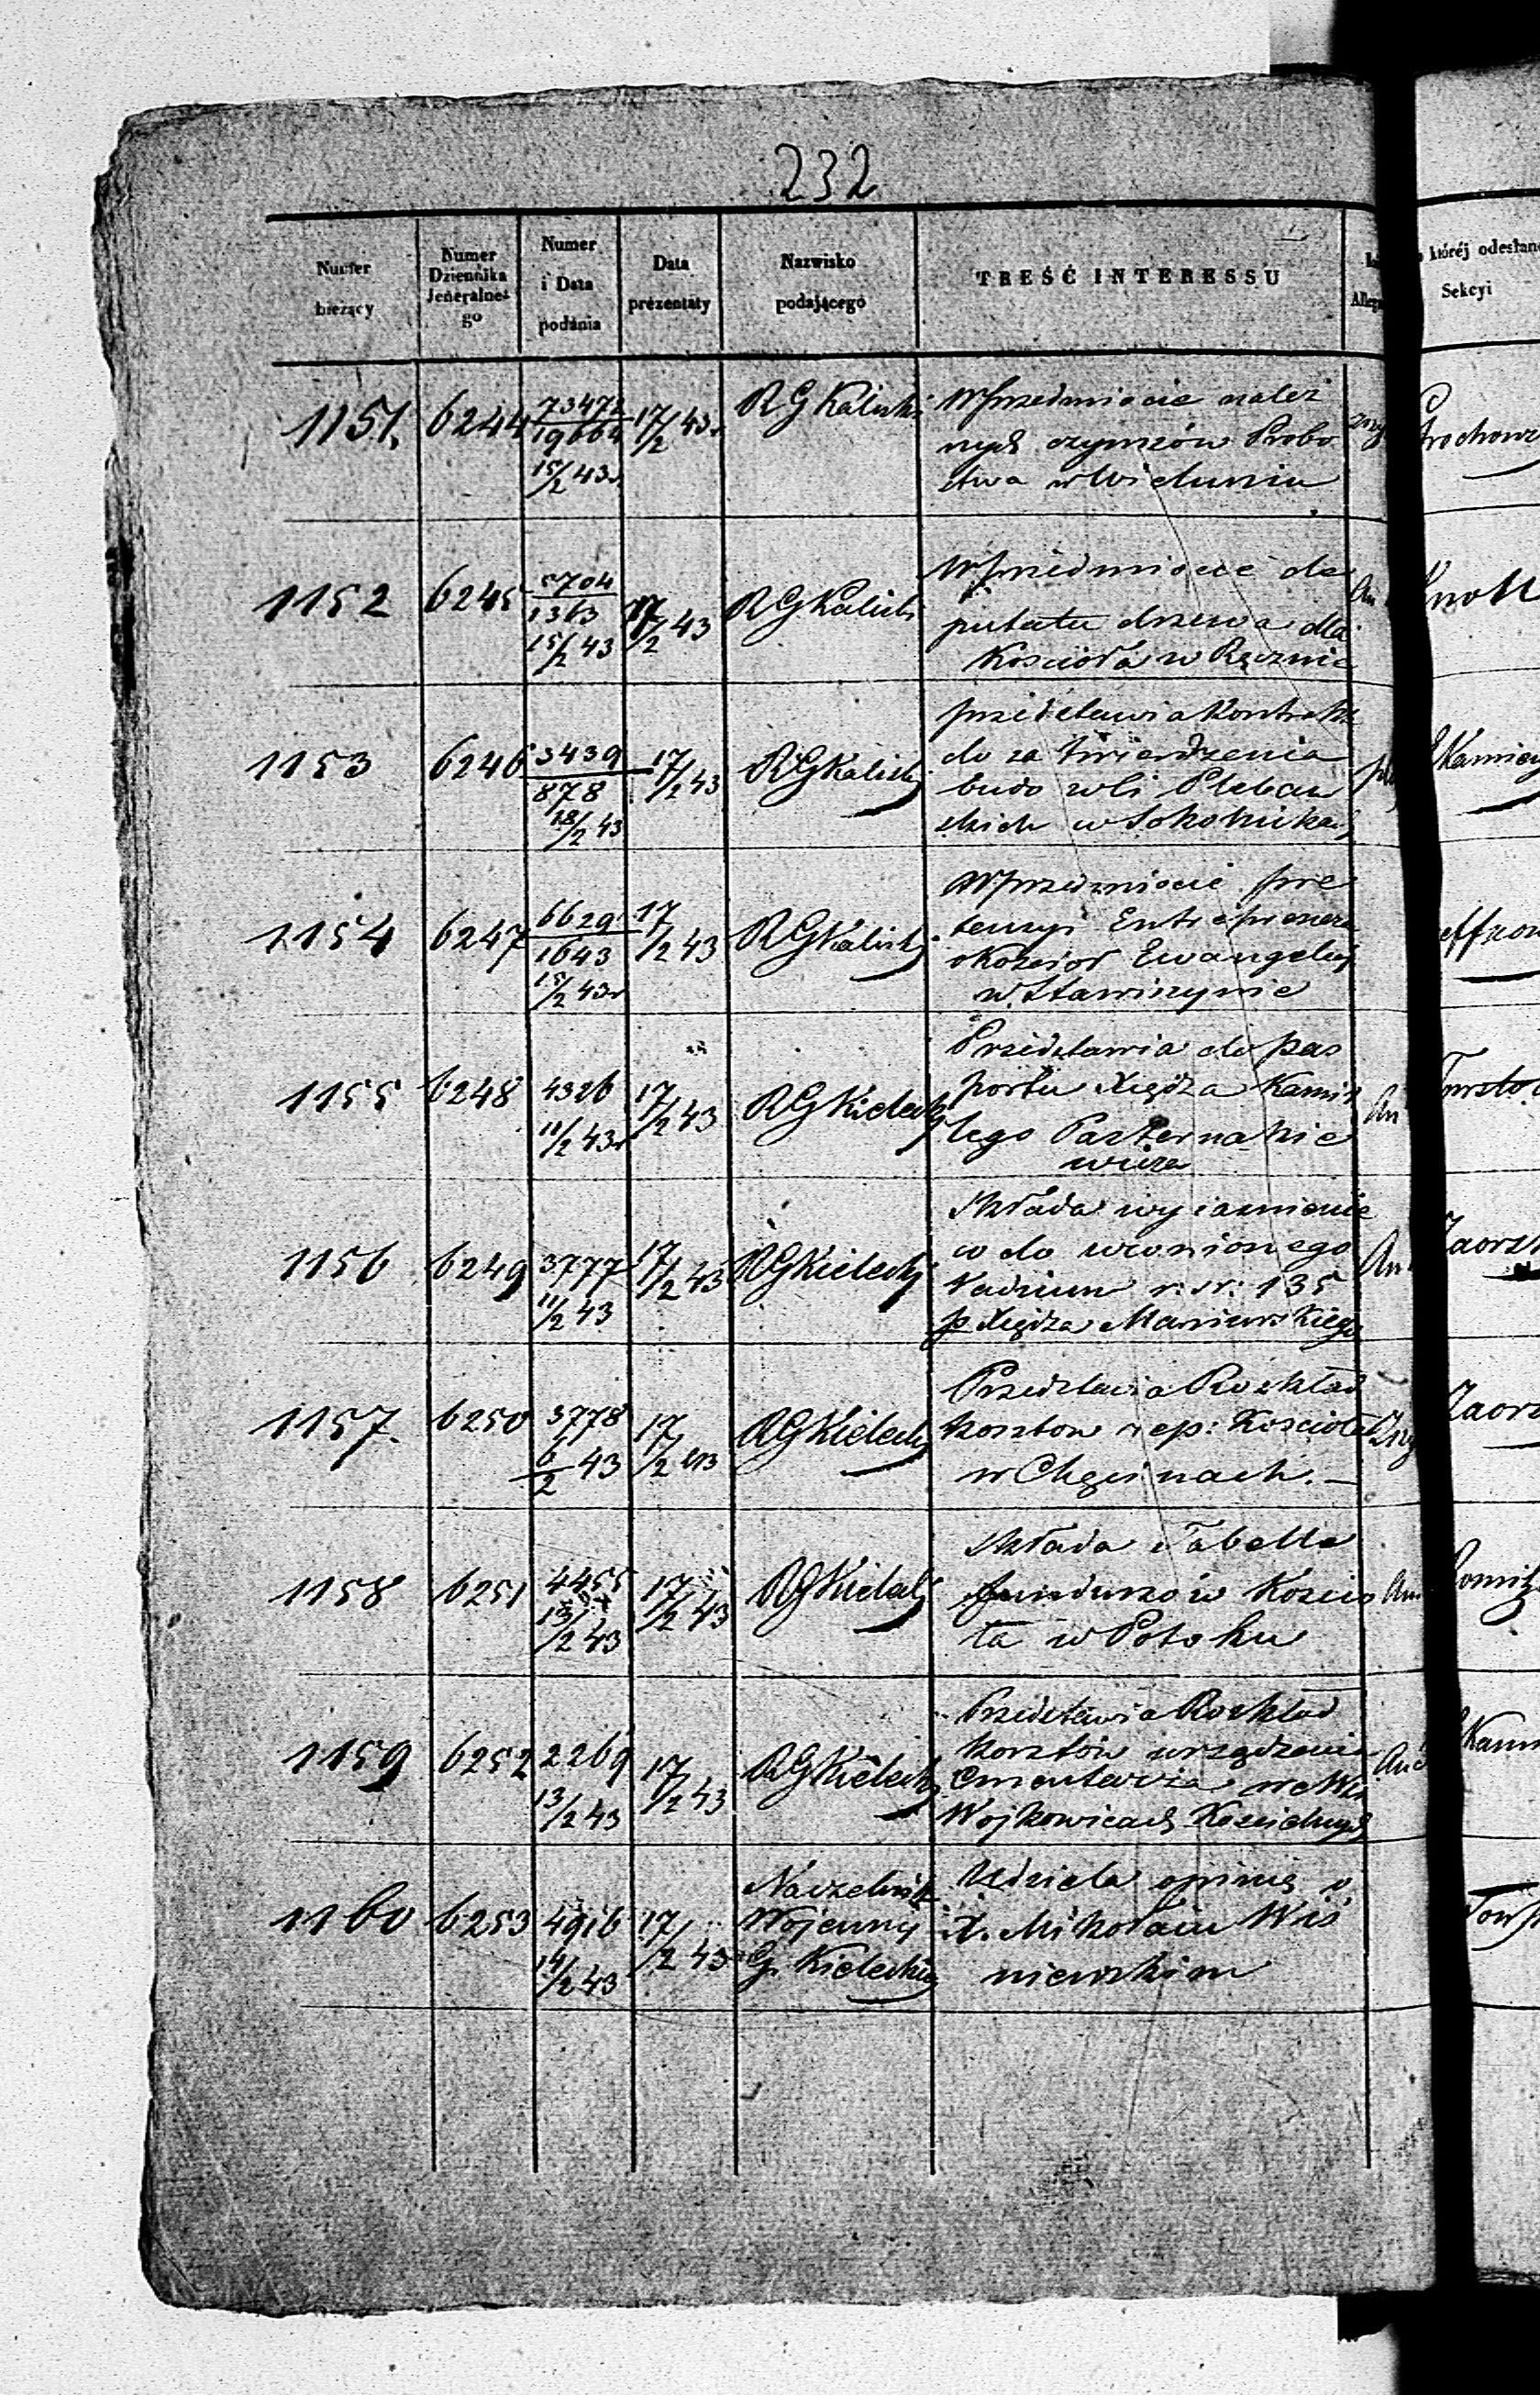 232
Numer bieżący
Numer Dziennika Jeneralnego
Numer i Data podania
Data prezentaty
Nazwisko podającego
TREŚĆ INTERESSU
której odesłan
Sekcyi
1151. 6244 73472 / 19664 15/2 43 17/2 43 RG Kaliski
W przedmiocie należ
nych czynszów Probo
stwa w Wieluniu
1152 6245 5704 / 1363 15/2 43 17/2 43 RG Kaliski
W przedmiocie de
putatu drzewa dla
Kościoła w Ręcznie
1153 6246 3439 / 878 18/2 43 17/2 43 RG Kaliski
przedstawia Kontrakt
do zatwierdzenia
budowli Pleban
skich w Sokolnikach
1154 6247 6629 / 1643 15/2 43 17/2 43 RG Kaliski
W przedmiocie pre
tensyi Entreprenera
Kościoł Ewangelicy
w Stawiszynie
1155 6248 4326 11/2 43 17/2 43 RG Kielecki
Przedstawia do pas
portu Xiędza Kamil
lego Pasternakie
wicza
1156 6249 3777 11/2 43 17/2 43 RG Kielecki
Składa wyiasnienie
co do wconionego
Vadium r. sr. 135
p Xiędza
1157. 6250 3778 6/2 43 17/2 43 RG Kielecki
Przedstawia Rozkład
kosztow rep: Kościoła
w Chęcinach. —
1158 6251 4455 13/2 43 17/2 43 RG Kielecki
Składa Tabelle
funduszów Koscio
ła w Potoku
1159 6252 2269 13/2 43 17/2 43 RG Kielecki
Przedstawia Rozkład
kosztów urządzenia
Cmentarza we Wsi
Wojkowicach Kościelnych
1160 6253 4916 14/2 43 17/2 43 Naczelnik Wojenny G. Kielecki
Udziela opinię o
X. Mikołaiu Wiś
niewskim